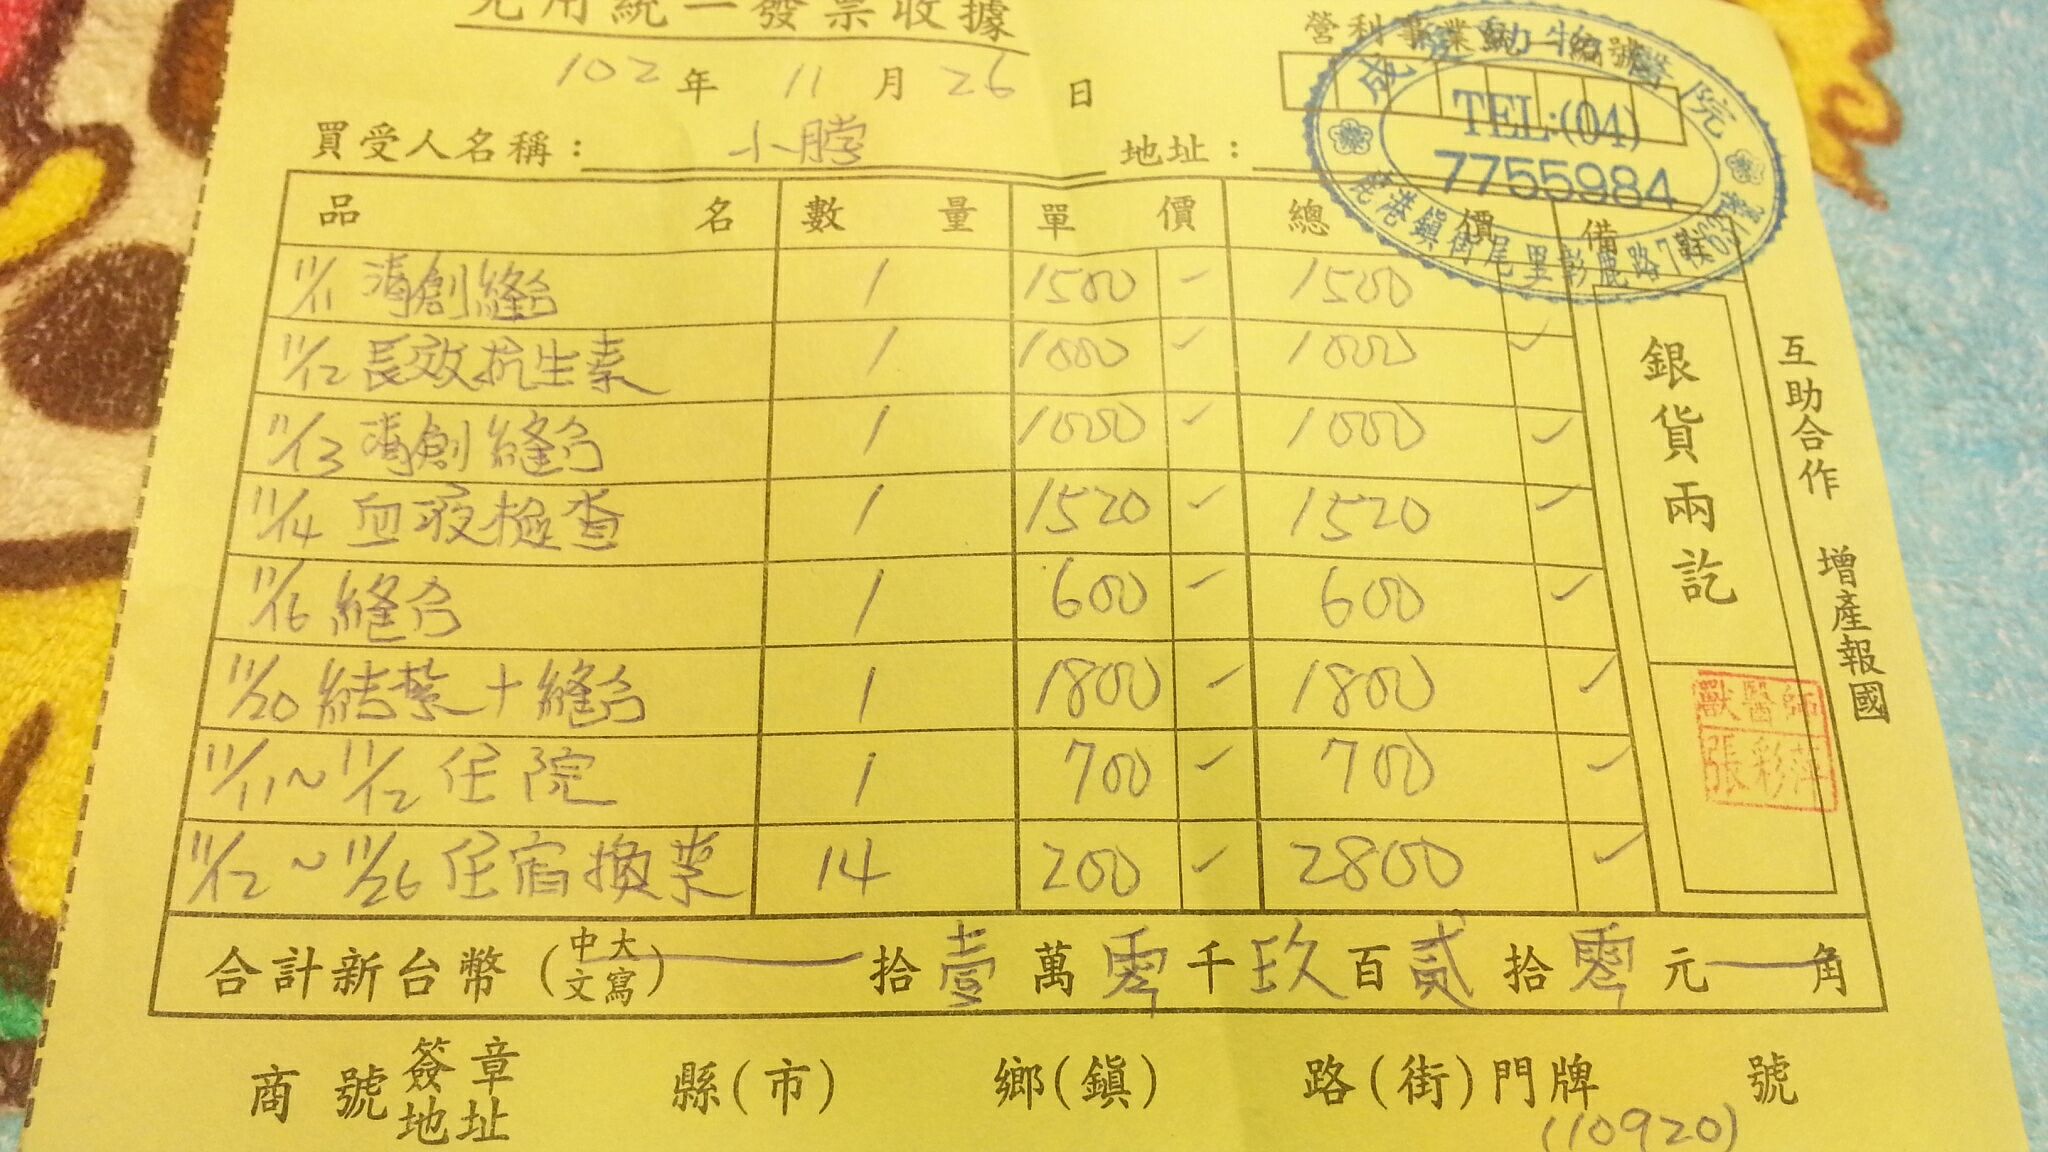 免用統一發票收據
營利事業統一編號
102年 11月 26日
TEL:(04)
7755984
買受人名稱：小脖 地址：
品名 數量 單價 總價 備註
11/11 清創縫合 1 1500 1500
11/12 長效抗生素 1 1000 1000
11/13 清創縫合 1 1000 1000
11/14 血液檢查 1 1520 1520
11/16 縫合 1 600 600
11/20 結紮+縫合 1 1800 1800
11/11~11/12 住院 1 700 700
11/12~11/26 住宿換藥 14 200 2800
銀貨兩訖
互助合作 增產報國
獸醫師
張彩萍
合計新台幣(中文大寫) 拾壹萬零千玖百貳拾零元 角
商號簽章地址 縣(市) 鄉(鎮) 路(街)門牌 號
(10920)